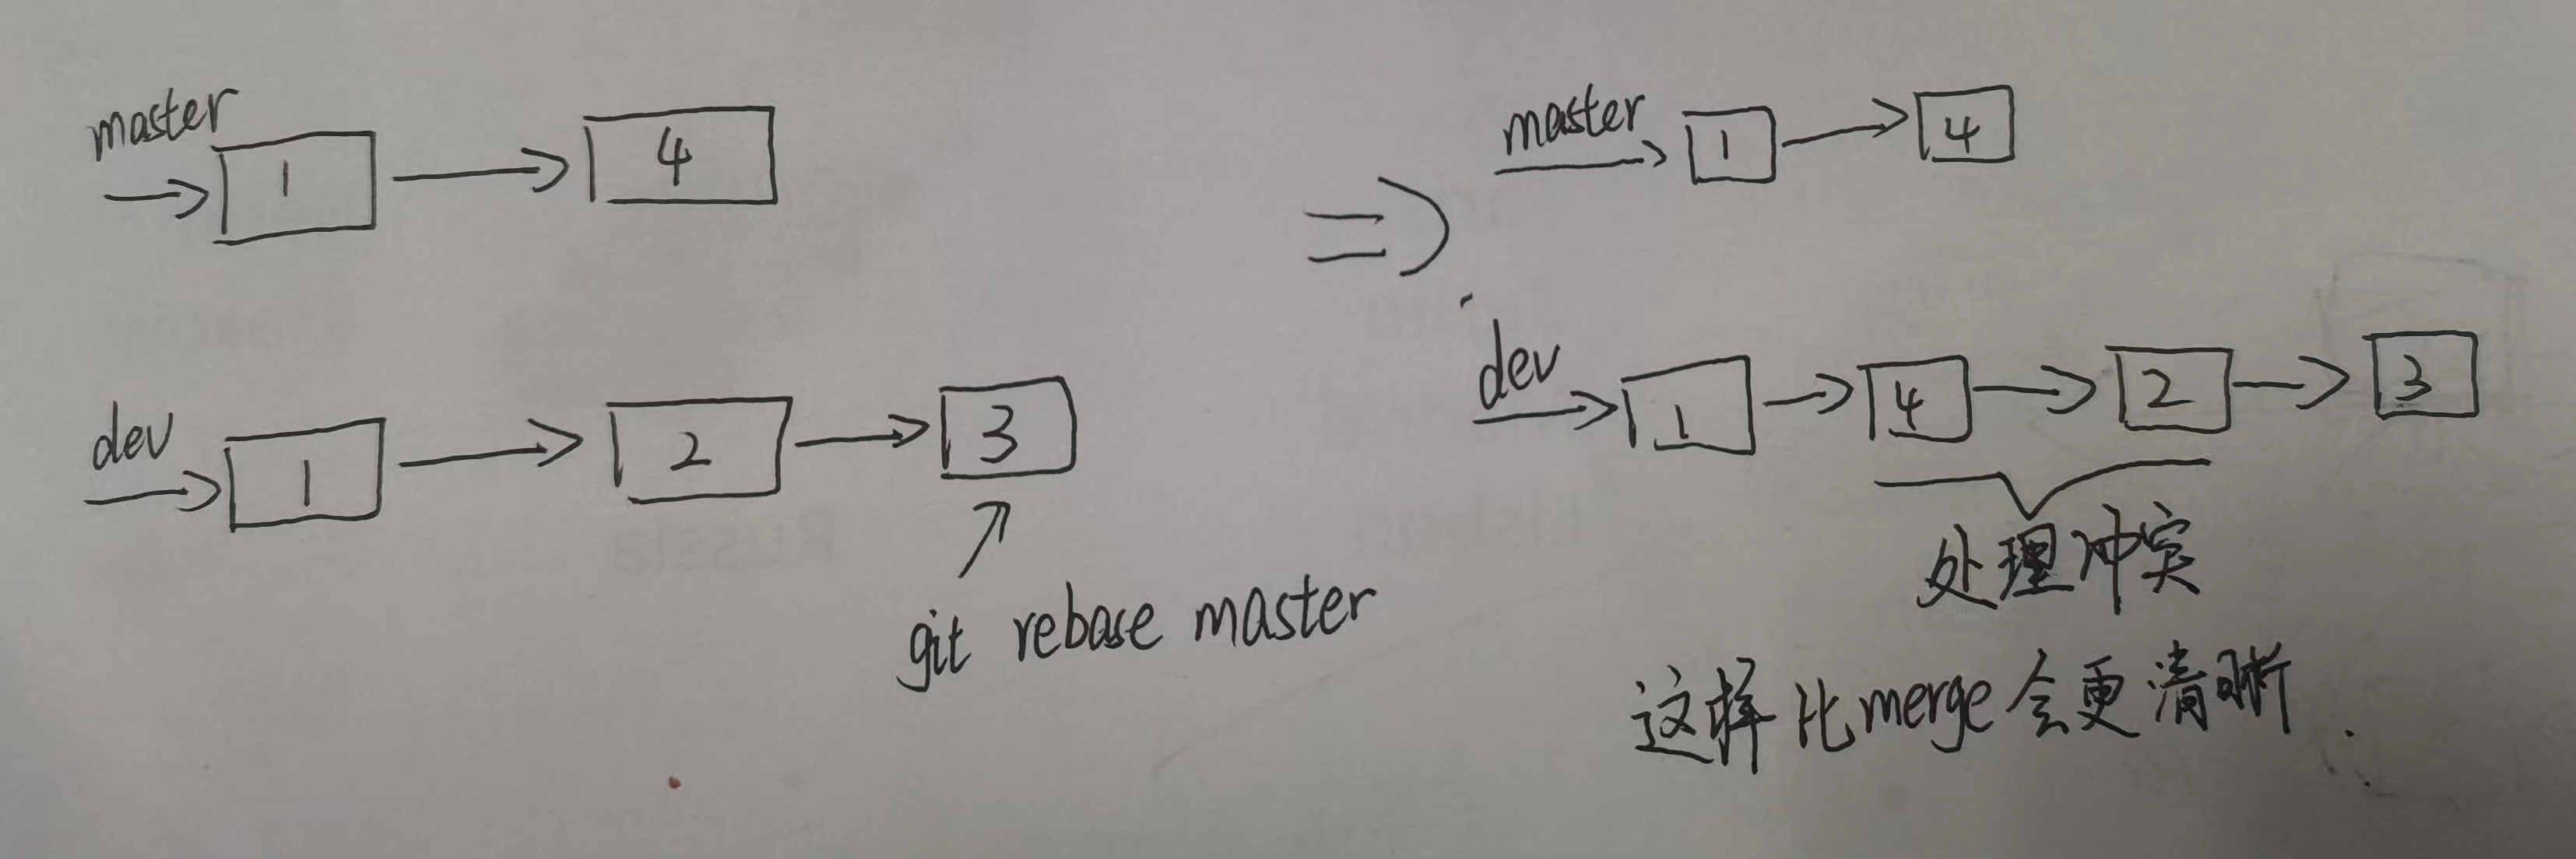 master
1 4
dev
1 2 3
git rebase master
master
1 4
dev
1 4 2 3
处理冲突
这样比merge会更清晰.